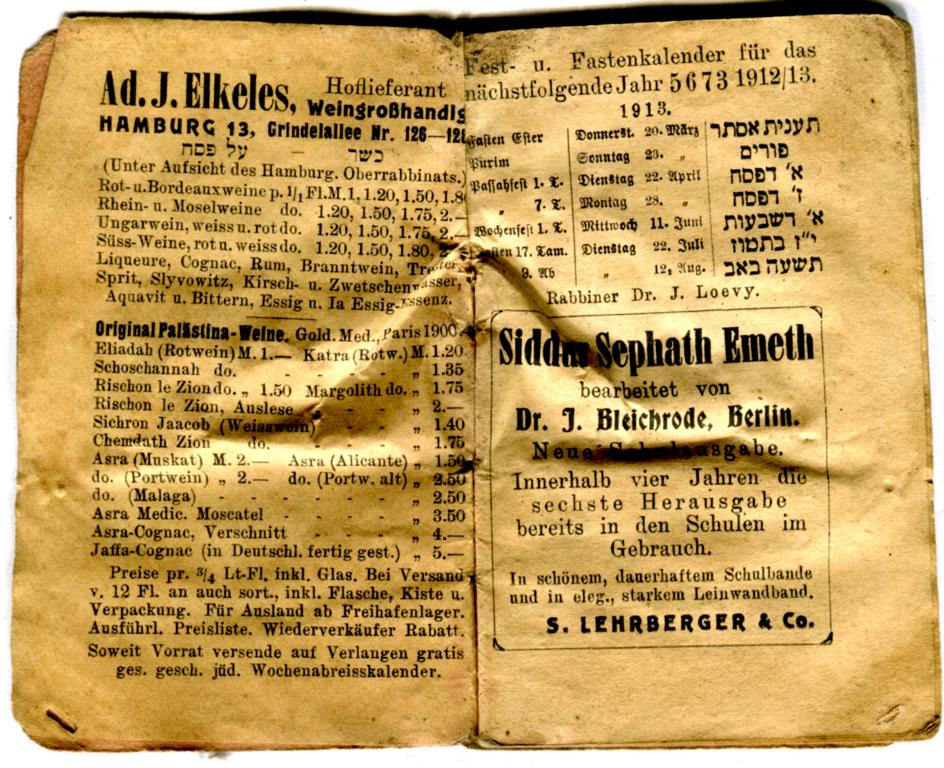 Ad. J. Elkeles, Hoflieferant
Weingroßhandlg
HAMBURG 13, Grindelallee Nr. 126—128
כשר – על פסח
(Unter Aufsicht des Hamburg. Oberrabbinats.)
Rot- u. Bordeauxweine p. 1/1 Fl. M. 1, 1.20, 1.50, 1.80
Rhein- u. Moselweine do. 1.20, 1.50, 1.75, 2.—
Ungarwein, weiss u. rot do. 1.20, 1.50, 1.75, 2.—
Süss-Weine, rot u. weiss do. 1.20, 1.50, 1.80, 2.—
Liqueure, Cognac, Rum, Branntwein, Trester,
Sprit, Slyvowitz, Kirsch- u. Zwetschenwasser,
Aquavit u. Bittern, Essig u. Ia Essig-Essenz.
Original Palästina-Weine. Gold. Med., Paris 1900.
Eliadah (Rotwein) M. 1.— Katra (Rotw.) M. 1.20
Schoschannah do. - - - - „ 1.35
Rischon le Zion do. „ 1.50 Margolith do. „ 1.75
Rischon le Zion, Auslese - - - „ 2.—
Sichron Jaacob (Weisswein) - - - „ 1.40
Chemdath Zion do. - - - „ 1.75
Asra (Muskat) M. 2.— Asra (Alicante) „ 1.50
do. (Portwein) „ 2.— do. (Portw. alt) „ 2.50
do. (Malaga) - - - - - - „ 2.50
Asra Medic. Moscatel - - - - „ 3.50
Asra-Cognac, Verschnitt - - - - „ 4.—
Jaffa-Cognac (in Deutschl. fertig gest.) „ 5.—
Preise pr. 3/4 Lt-Fl. inkl. Glas. Bei Versand
v. 12 Fl. an auch sort., inkl. Flasche, Kiste u.
Verpackung. Für Ausland ab Freihafenlager.
Ausführl. Preisliste. Wiederverkäufer Rabatt.
Soweit Vorrat versende auf Verlangen gratis
ges. gesch. jüd. Wochenabreisskalender.
Fest- u. Fastenkalender für das
nächstfolgende Jahr 5673 1912/13.
1913.
Fasten Ester Donnerst. 20. März תענית אסתר
Purim Sonntag 23. „ פורים
Passahfest 1. T. Dienstag 22. April א' דפסח
„ 7. T. Montag 28. „ ז' דפסח
Wochenfest 1. T. Mittwoch 11. Juni א' דשבעות
Fasten 17. Tam. Dienstag 22. Juli י"ז בתמוז
„ 9. Ab „ 12. Aug. תשעה באב
Rabbiner Dr. J. Loevy.
Siddur Sephath Emeth
bearbeitet von
Dr. J. Bleichrode, Berlin.
Neue Schulausgabe.
Innerhalb vier Jahren die
sechste Herausgabe
bereits in den Schulen im
Gebrauch.
In schönem, dauerhaftem Schulbande
und in eleg., starkem Leinwandband.
S. LEHRBERGER & Co.